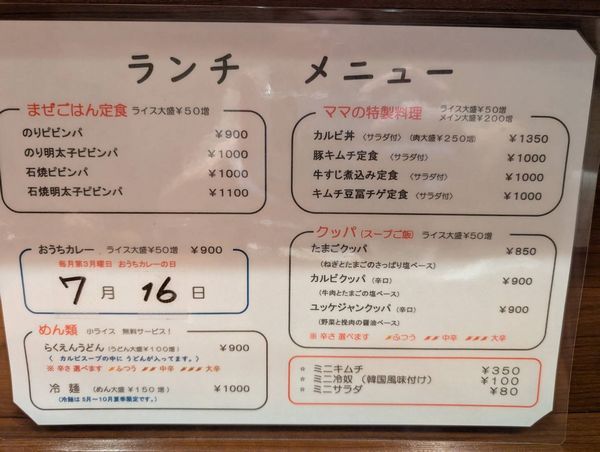 ランチ メニュー
まぜごはん定食 ライス大盛¥50増
のりビビンバ ¥900
のり明太子ビビンバ ¥1000
石焼ビビンバ ¥1000
石焼明太子ビビンバ ¥1100
おうちカレー ライス大盛¥50増 ¥900
毎月第3月曜日 おうちカレーの日
7月16日
めん類 小ライス 無料サービス!
らくえんうどん (うどん大盛¥100増) ¥900
( カルビスープの中に うどんが入ってます。)
※ 辛さ 選べます ふつう 中辛 大辛
冷麺 (めん大盛 ¥150 増) ¥1000
(冷麺は5月~10月夏季限定です。)
ママの特製料理 ライス大盛¥50増
メイン大盛¥200増
カルビ丼 〈サラダ付〉 (肉大盛¥250増) ¥1350
豚キムチ定食 〈サラダ付〉 ¥1000
牛すじ煮込み定食 〈サラダ付〉 ¥1000
キムチ豆冨チゲ定食 〈サラダ付〉 ¥1000
クッパ (スープご飯) ライス大盛¥50増
たまごクッパ ¥850
(ねぎとたまごのさっぱり塩ベース)
カルビクッパ (辛口) ¥900
(牛肉とたまごの塩ベース)
ユッケジャンクッパ (辛口) ¥900
(野菜と挽肉の醤油ベース)
※ 辛さ 選べます ふつう 中辛 大辛
☆ ミニキムチ ¥350
☆ ミニ冷奴 (韓国風味付け) ¥100
☆ ミニサラダ ¥80